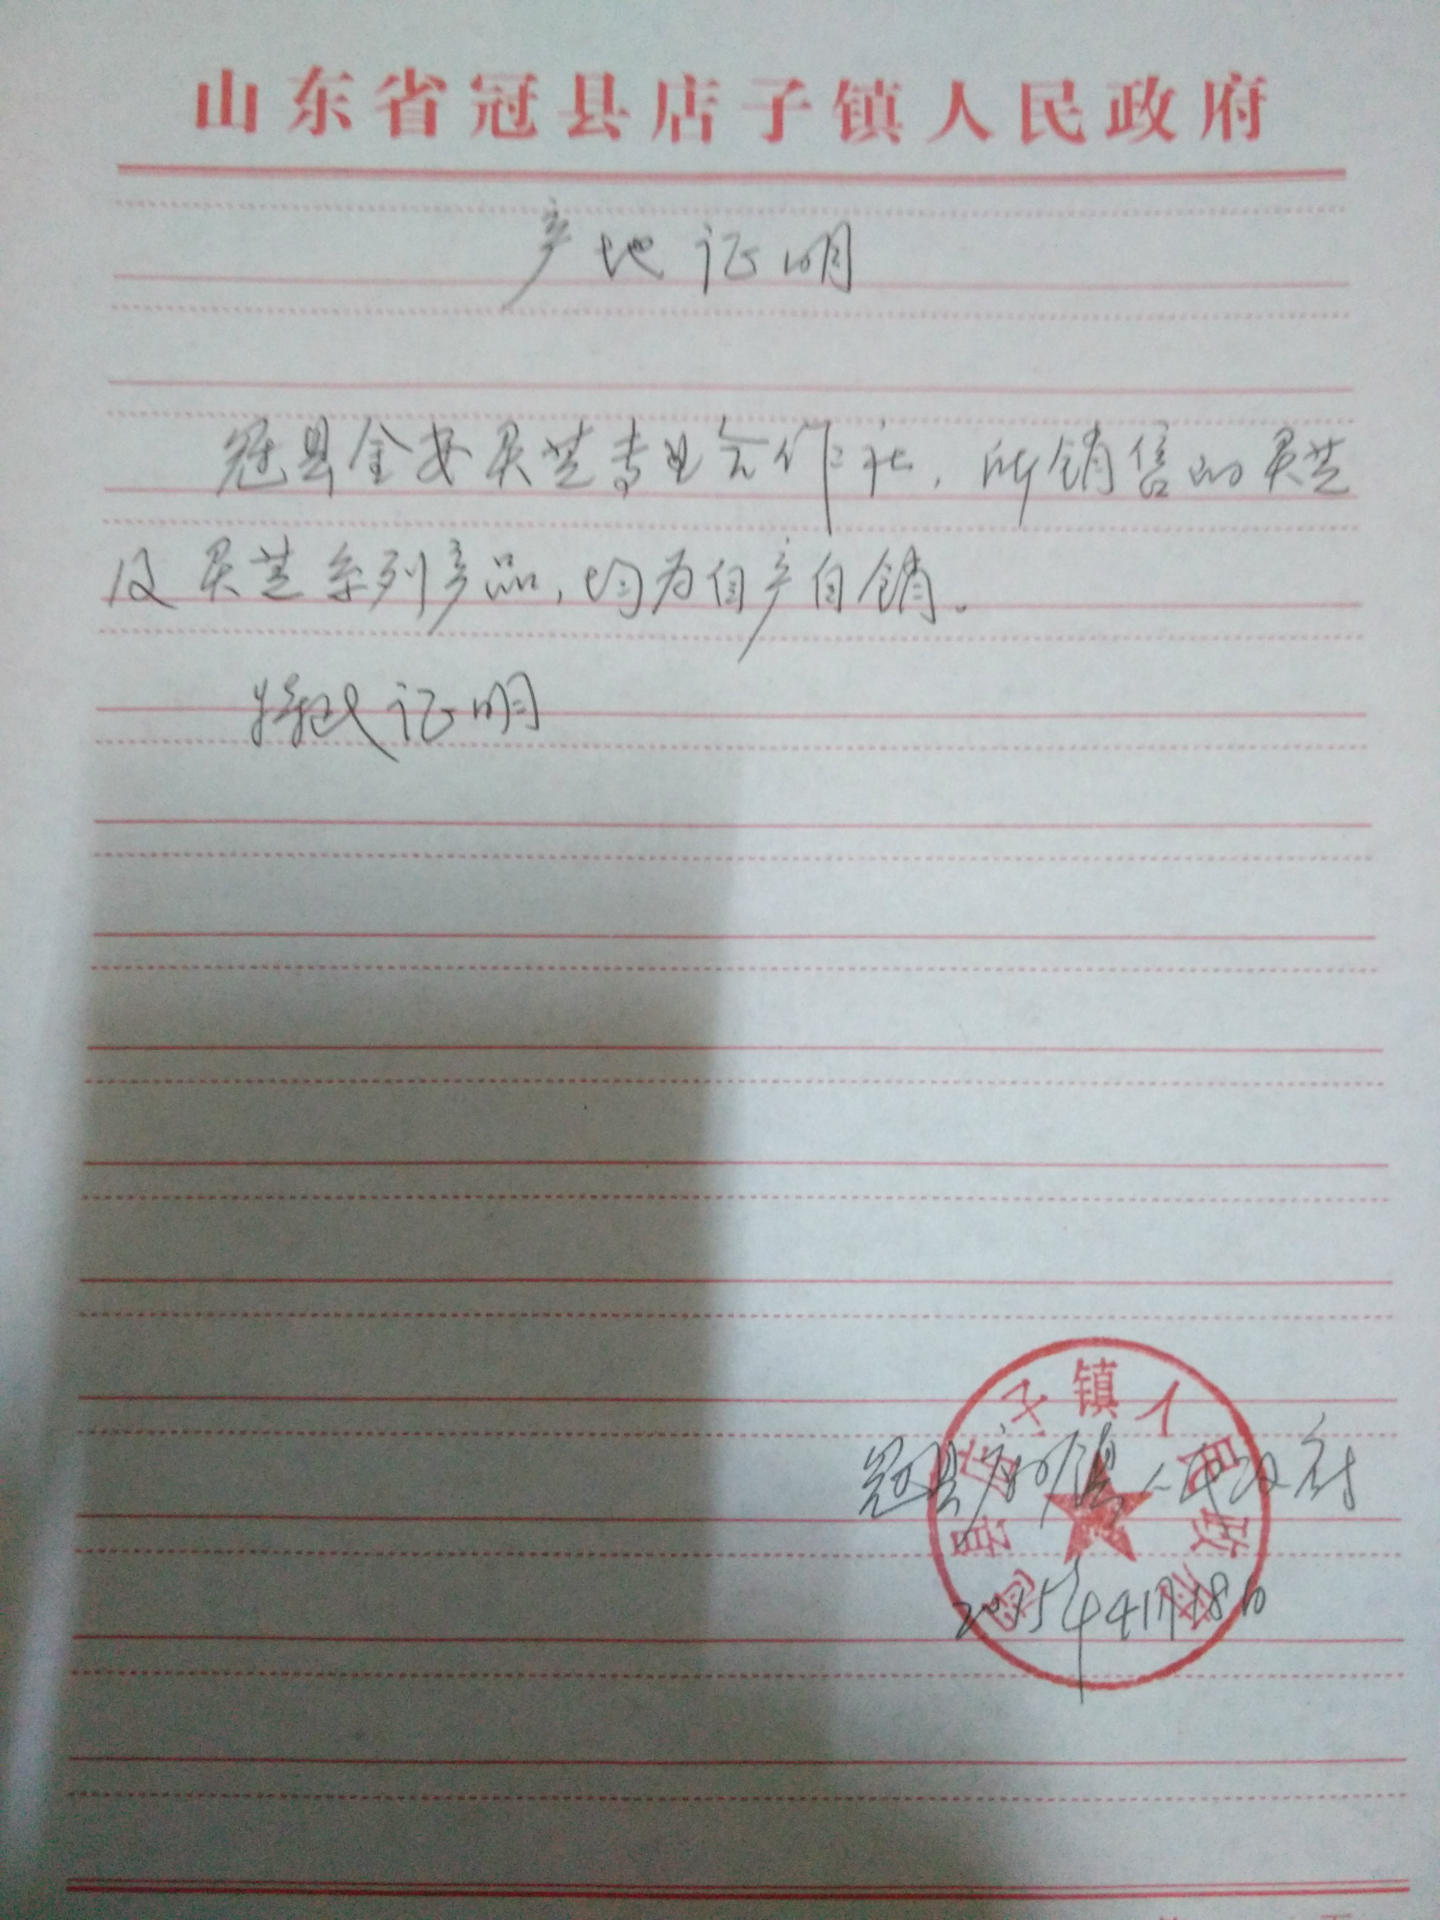 山东省冠县店子镇人民政府
产地证明
冠县金安灵芝专业合作社，所销售的灵芝
及灵芝系列产品，均为自产自销。
特此证明
冠县店子镇人民政府
2015年4月18日